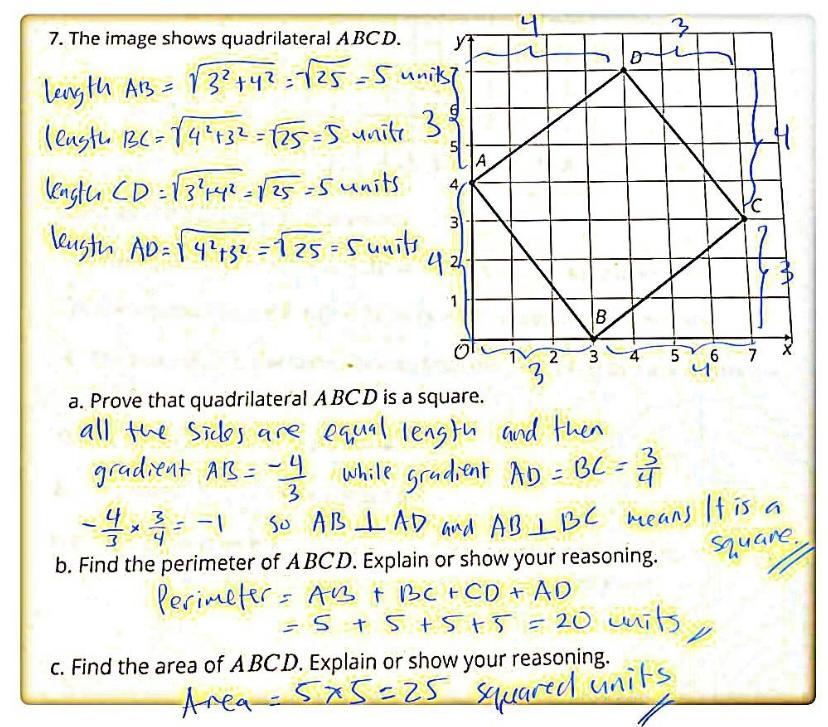 7. The image shows quadrilateral ABCD.
length AB = √3²+4² = √25 = 5 units
length BC = √4²+3² = √25 = 5 units
length CD = √3²+4² = √25 = 5 units
length AD = √4²+3² = √25 = 5 units
4 3
y
D
7
6
3
5
4
A
4
3
C
4
2
3
1
B
O 1 2 3 4 5 6 7 x
3 4
a. Prove that quadrilateral ABCD is a square.
all the sides are equal length and then
gradient AB = -4/3 while gradient AD = BC = 3/4
-4/3 × 3/4 = -1 so AB ⊥ AD and AB ⊥ BC means It is a
square.
b. Find the perimeter of ABCD. Explain or show your reasoning.
Perimeter = AB + BC + CD + AD
= 5 + 5 + 5 + 5 = 20 units
c. Find the area of ABCD. Explain or show your reasoning.
Area = 5×5 = 25 squared units